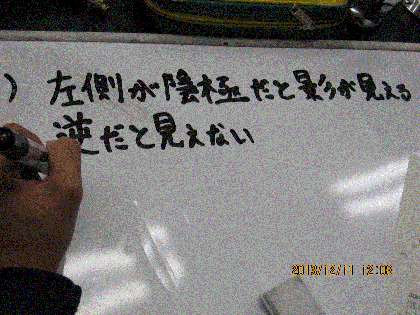 ) 左側が陰極だと影が見える
逆だと見えない
2013/12/11 12:08